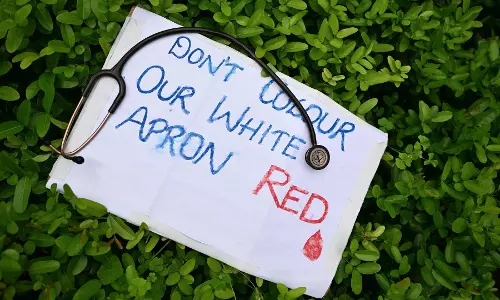 DON'T COLOUR
OUR WHITE
APRON RED